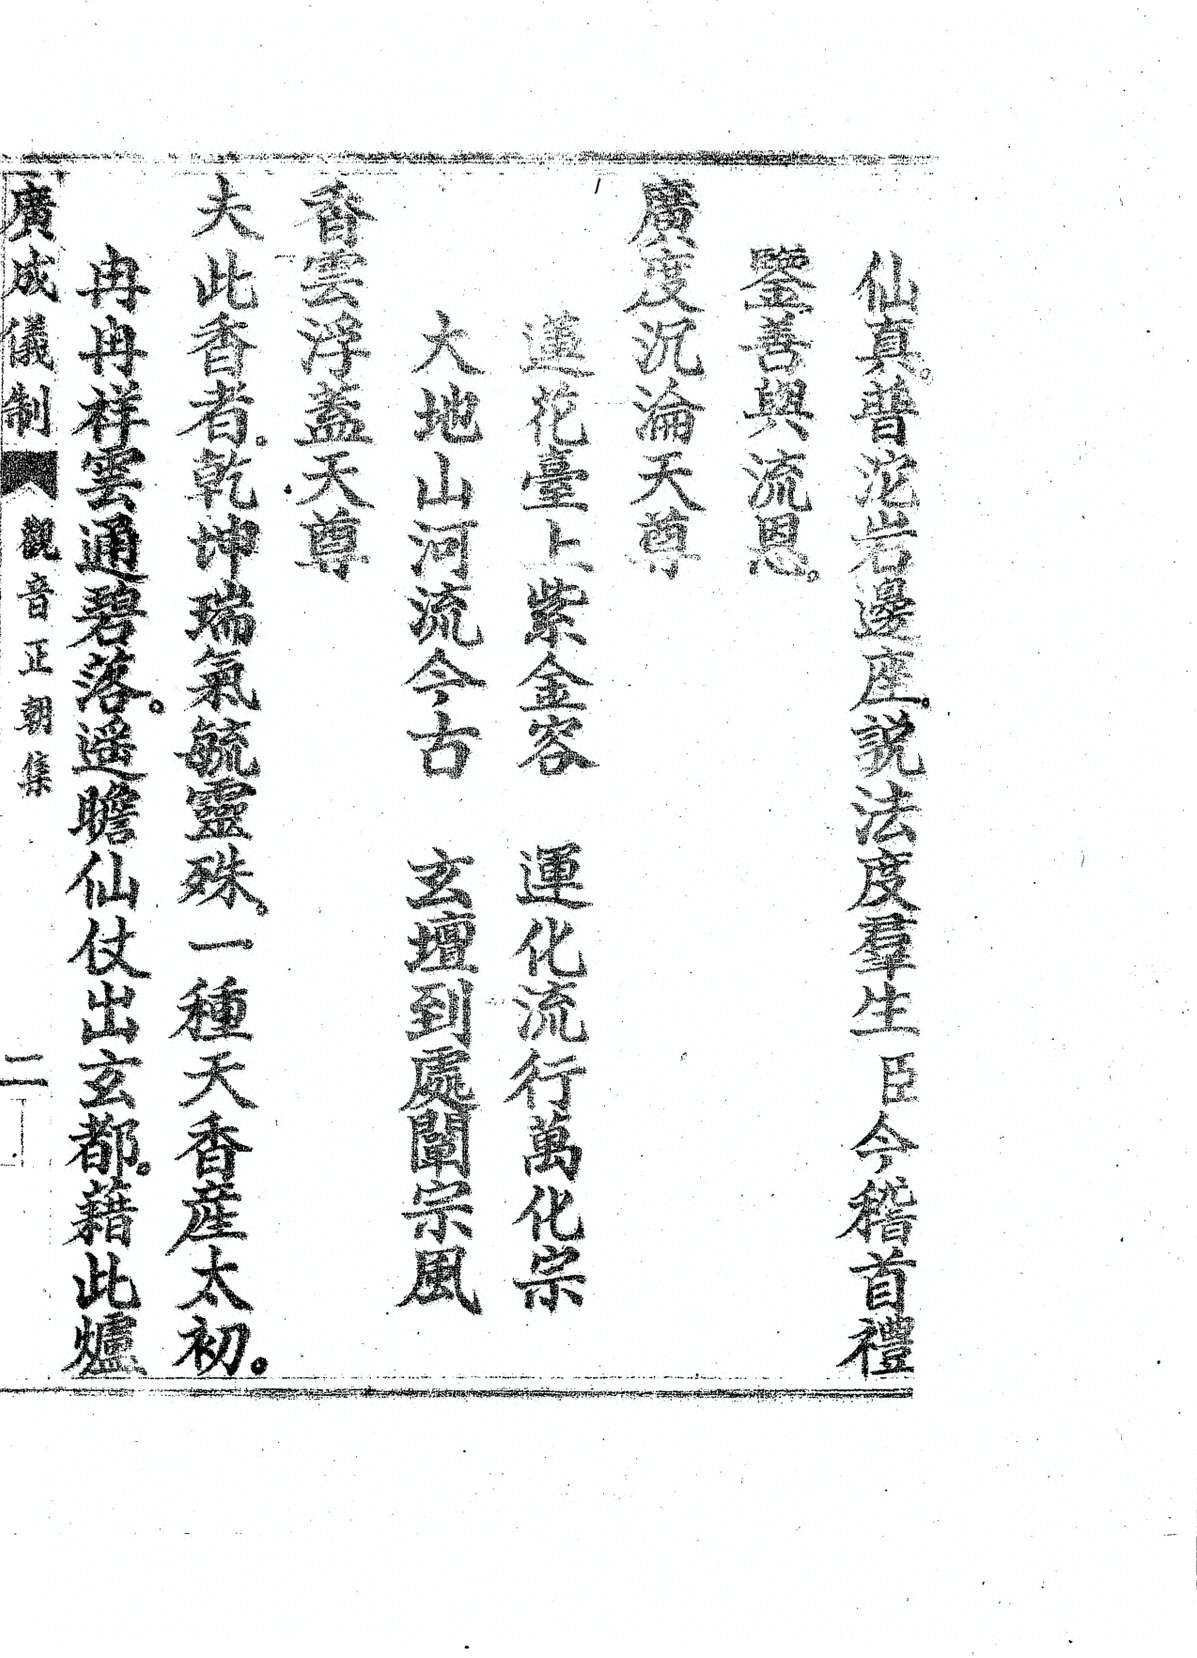 仙真。普沱岩邊座。説法度羣生臣今稽首禮
鑒善與流恩。
廣度沉淪天尊
蓮花臺上紫金容　運化流行萬化宗
大地山河流今古　玄壇到處闡宗風
香雲浮蓋天尊
夫此香者。乾坤瑞氣毓靈殊。一種天香産太初。
冉冉祥雲通碧落。遥瞻仙仗出玄都。藉此爐
廣成儀制　觀音正朝集　二